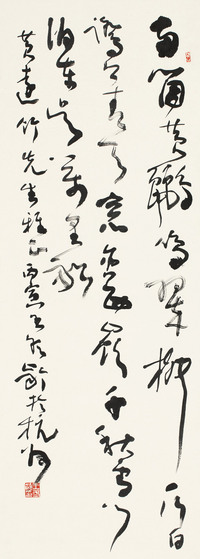 兩箇黃鸝鳴翠柳一行白
鷺上青天窓含西嶺千秋雪門
泊東吳萬里船
黃竹先生雅正丙寅王冬齡於杭州